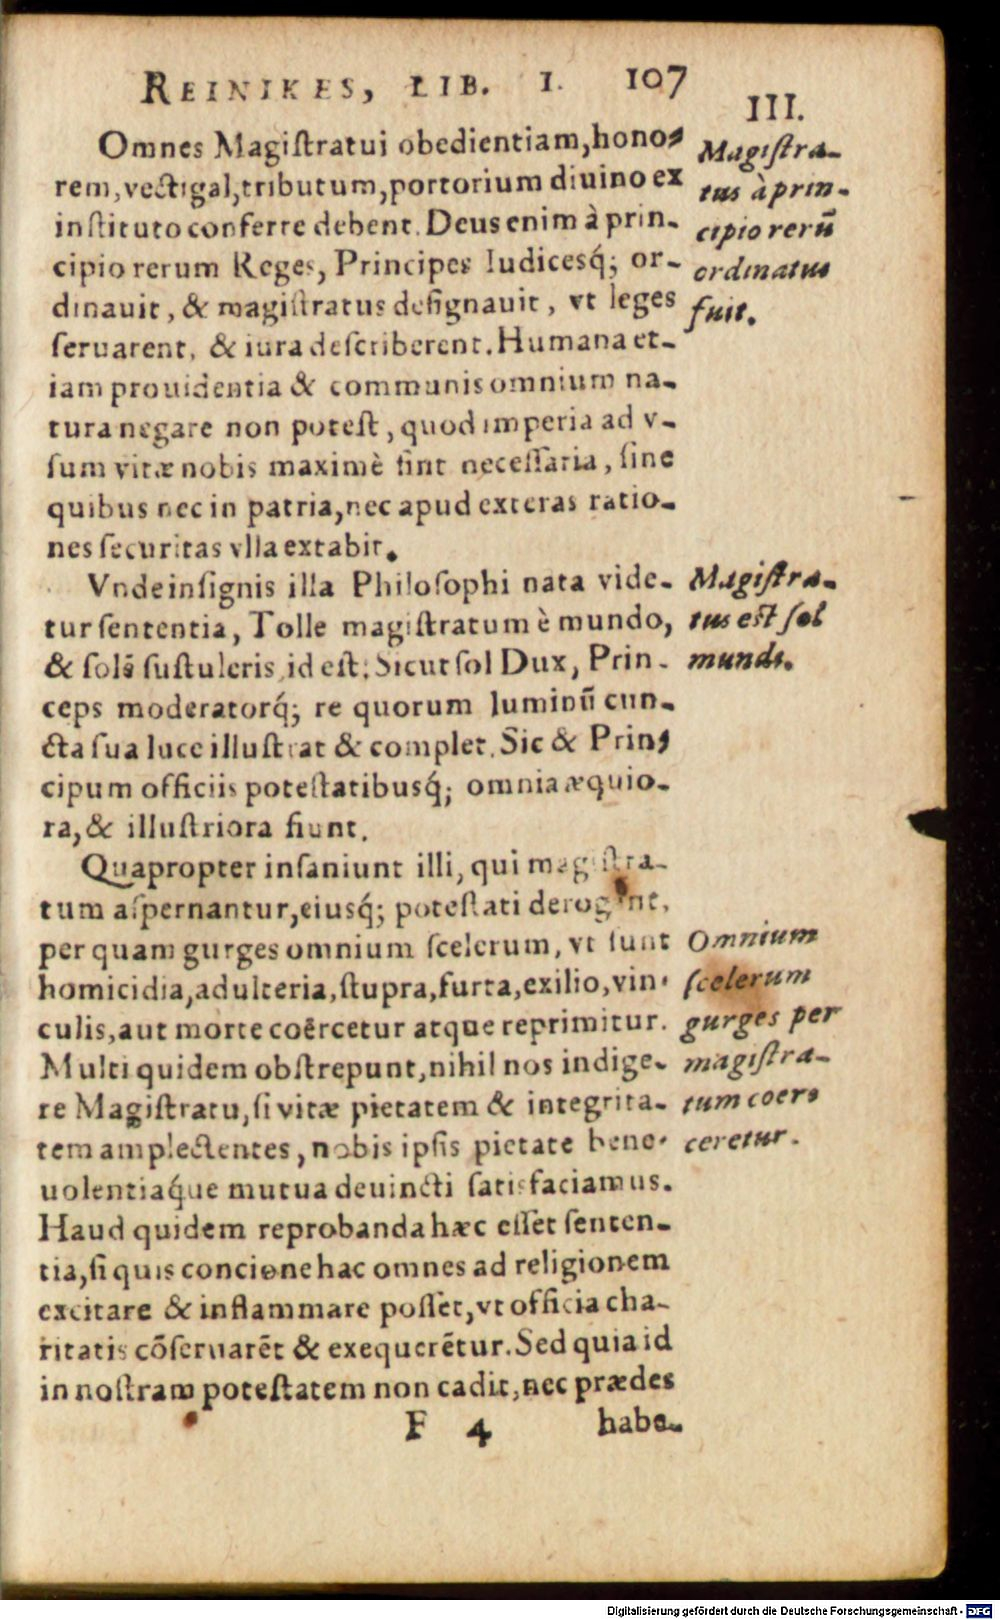 REINIKES, LIB. I. 107
Omnes Magiſtratui obedientiam, hono-
rem, vectigal, tributum, portorium diuino ex
inſtituto conferre debent. Deus enim à prin-
cipio rerum Reges, Principes Iudicesq́; or-
dinauit, & magiſtratus deſignauit, vt leges
ſeruarent, & iura deſcriberent. Humana et-
iam prouidentia & communis omnium na-
tura negare non poteſt, quod imperia ad v-
ſum vitæ nobis maximè ſint neceſſaria, ſine
quibus nec in patria, nec apud exteras ratio-
nes ſecuritas vlla extabit.
Vnde inſignis illa Philoſophi nata vide-
tur ſententia, Tolle magiſtratum è mundo,
& solē ſuſtuleris, id eſt: Sicut ſol Dux, Prin-
ceps moderatorq́; re quorum luminū cun-
cta ſua luce illuſtrat & complet. Sic & Prin-
cipum officiis poteſtatibusq́; omnia æquio-
ra, & illuſtriora fiunt.
Quapropter inſaniunt illi, qui magiſtra-
tum aſpernantur, eiusq́; poteſtati derogant,
per quam gurges omnium ſcelerum, vt ſunt
homicidia, adulteria, ſtupra, furta, exilio, vin-
culis, aut morte coërcetur atque reprimitur.
Multi quidem obſtrepunt, nihil nos indige-
re Magiſtratu, ſi vitæ pietatem & integrita-
tem amplectentes, nobis ipſis pietate bene-
uolentiaq́ue mutua deuincti ſatisfaciamus.
Haud quidem reprobanda hæc eſſet ſenten-
tia, ſi quis concione hac omnes ad religionem
excitare & inflammare poſſet, vt officia cha-
ritatis cōſeruarēt & exequerētur. Sed quia id
in noſtram poteſtatem non cadit, nec prædes
F 4 habe-
III.
Magiſtra-
tus à prin-
cipio rerū
ordinatus
fuit.
Magiſtra-
tus eſt ſol
mundi.
Omnium
ſcelerum
gurges per
magiſtra-
tum coer-
ceretur.
Digitalisierung gefördert durch die Deutsche Forschungsgemeinschaft - DFG